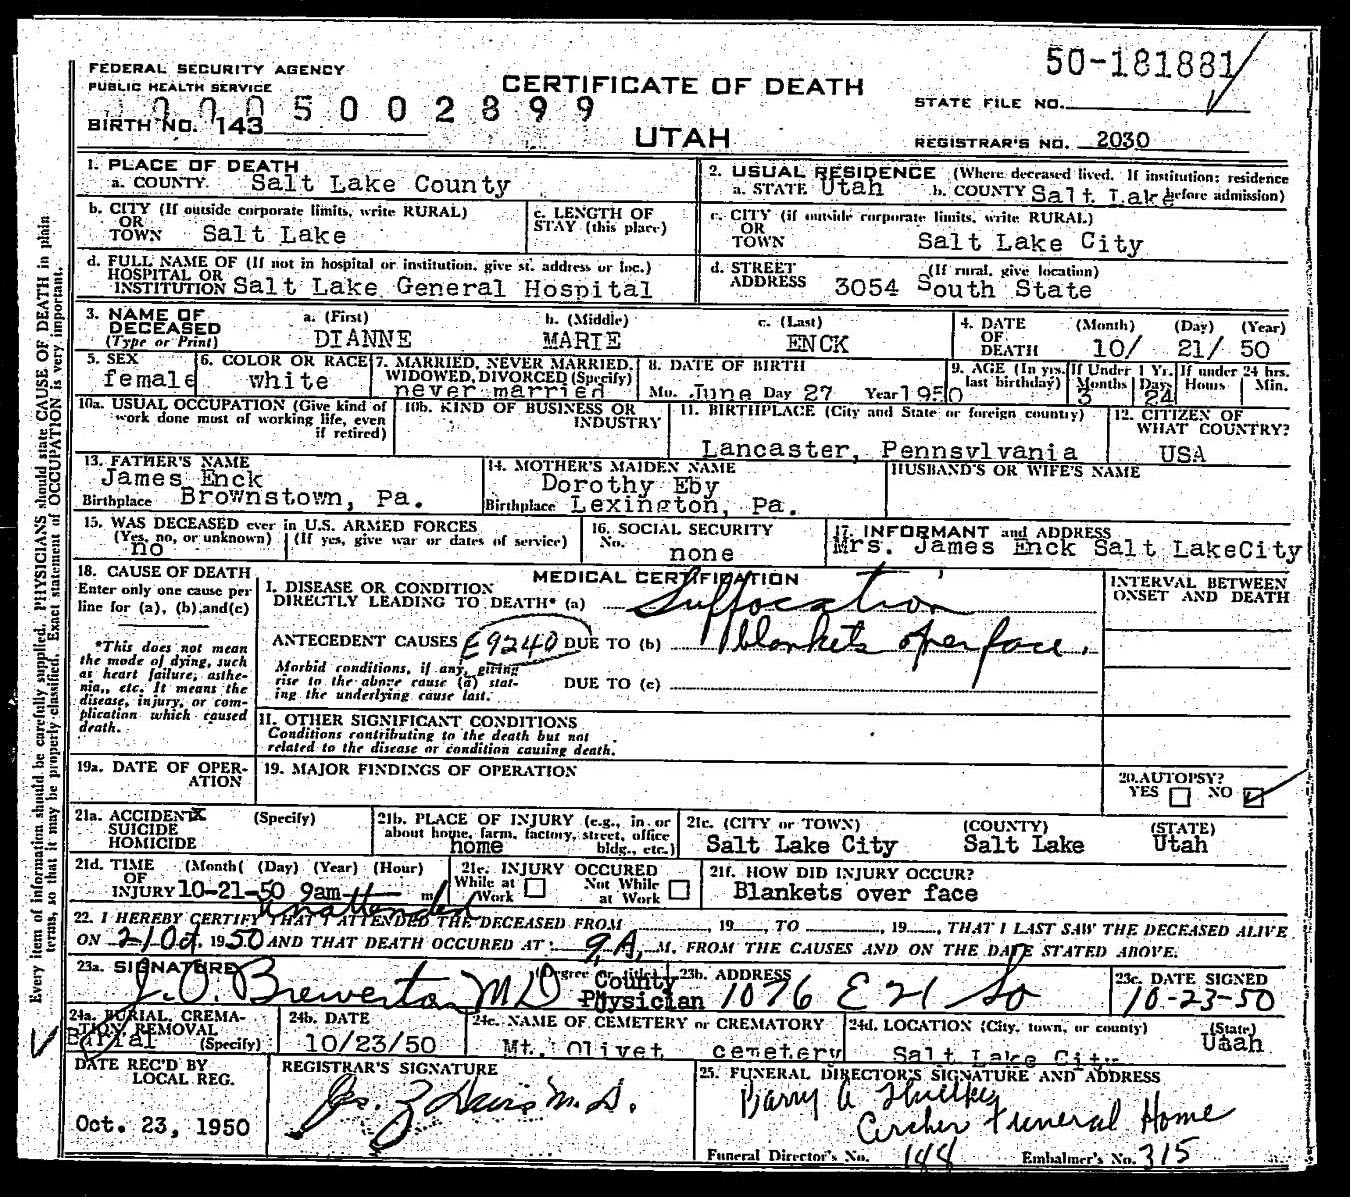 50-181881
FEDERAL SECURITY AGENCY
PUBLIC HEALTH SERVICE
CERTIFICATE OF DEATH
STATE FILE NO.
5002899
BIRTH NO. 143
UTAH
REGISTRAR'S NO. 2030
1. PLACE OF DEATH
a. COUNTY. Salt Lake County
2. USUAL RESIDENCE (Where deceased lived. If institution: residence before admission)
a. STATE Utah b. COUNTY Salt Lake
b. CITY (If outside corporate limits, write RURAL)
OR
TOWN Salt Lake
c. LENGTH OF
STAY (this place)
c. CITY (if outside corporate limits, write RURAL)
OR
TOWN Salt Lake City
d. FULL NAME OF (If not in hospital or institution, give st. address or loc.)
HOSPITAL OR
INSTITUTION Salt Lake General Hospital
d. STREET (If rural, give location)
ADDRESS 3054 South State
3. NAME OF
DECEASED
(Type or Print)
a. (First)
DIANNE
b. (Middle)
MARIE
c. (Last)
ENCK
4. DATE (Month) (Day) (Year)
OF
DEATH 10/ 21/ 50
5. SEX
female
6. COLOR OR RACE
white
7. MARRIED, NEVER MARRIED,
WIDOWED, DIVORCED (Specify)
never married
8. DATE OF BIRTH
Mo. June Day 27 Year 1950
9. AGE (In yrs. last birthday)
If Under 1 Yr.
Months Days
3 24
If under 24 hrs.
Hours Min.
10a. USUAL OCCUPATION (Give kind of
work done most of working life, even
if retired)
10b. KIND OF BUSINESS OR
INDUSTRY
11. BIRTHPLACE (City and State or foreign country)
Lancaster, Pennsylvania
12. CITIZEN OF
WHAT COUNTRY?
USA
13. FATHER'S NAME
James Enck
Birthplace Brownstown, Pa.
14. MOTHER'S MAIDEN NAME
Dorothy Eby
Birthplace Lexington, Pa.
HUSBAND'S OR WIFE'S NAME
15. WAS DECEASED ever in U.S. ARMED FORCES
(Yes, no, or unknown) (If yes, give war or dates of service)
no
16. SOCIAL SECURITY
No. none
17. INFORMANT and ADDRESS
Mrs. James Enck Salt LakeCity
18. CAUSE OF DEATH
Enter only one cause per
line for (a), (b), and (c)
*This does not mean
the mode of dying, such
as heart failure, asthe-
nia,, etc. It means the
disease, injury, or com-
plication which caused
death.
MEDICAL CERTIFICATION
I. DISEASE OR CONDITION
DIRECTLY LEADING TO DEATH* (a) Suffocation
ANTECEDENT CAUSES E9240 DUE TO (b) blankets over face.
Morbid conditions, if any, giving
rise to the above cause (a) stat-
ing the underlying cause last.
DUE TO (c)
II. OTHER SIGNIFICANT CONDITIONS
Conditions contributing to the death but not
related to the disease or condition causing death.
INTERVAL BETWEEN
ONSET AND DEATH
19a. DATE OF OPER-
ATION
19. MAJOR FINDINGS OF OPERATION
20. AUTOPSY?
YES NO
21a. ACCIDENT X (Specify)
SUICIDE
HOMICIDE
21b. PLACE OF INJURY (e.g., in or
about home, farm, factory, street, office
bldg., etc.)
home
21c. (CITY or TOWN) (COUNTY) (STATE)
Salt Lake City Salt Lake Utah
21d. TIME (Month) (Day) (Year) (Hour)
OF
INJURY 10-21-50 9am m
21e. INJURY OCCURED
While at Work Not While at Work
21f. HOW DID INJURY OCCUR?
Blankets over face
unattended
22. I HEREBY CERTIFY THAT I ATTENDED THE DECEASED FROM , 19 , TO , 19 , THAT I LAST SAW THE DECEASED ALIVE
ON 21 Oct, 1950 AND THAT DEATH OCCURED AT 9 A. M. FROM THE CAUSES AND ON THE DATE STATED ABOVE.
23a. SIGNATURE (Degree or title)
J. O. Brewerton MD County
Physician
23b. ADDRESS
1076 E 21 So
23c. DATE SIGNED
10-23-50
24a. BURIAL, CREMA-
TION, REMOVAL
(Specify)
Burial
24b. DATE
10/23/50
24c. NAME OF CEMETERY or CREMATORY
Mt. Olivet cemetery
24d. LOCATION (City, town, or county) (State)
Salt Lake City Utah
DATE REC'D BY
LOCAL REG.
Oct. 23, 1950
REGISTRAR'S SIGNATURE
M.D.
25. FUNERAL DIRECTOR'S SIGNATURE AND ADDRESS
Archer Funeral Home
Funeral Director's No. 144 Embalmer's No. 315
Every item of information should be carefully supplied. PHYSICIANS should state CAUSE OF DEATH in plain
terms, so that it may be properly classified. Exact statement of OCCUPATION is very important.